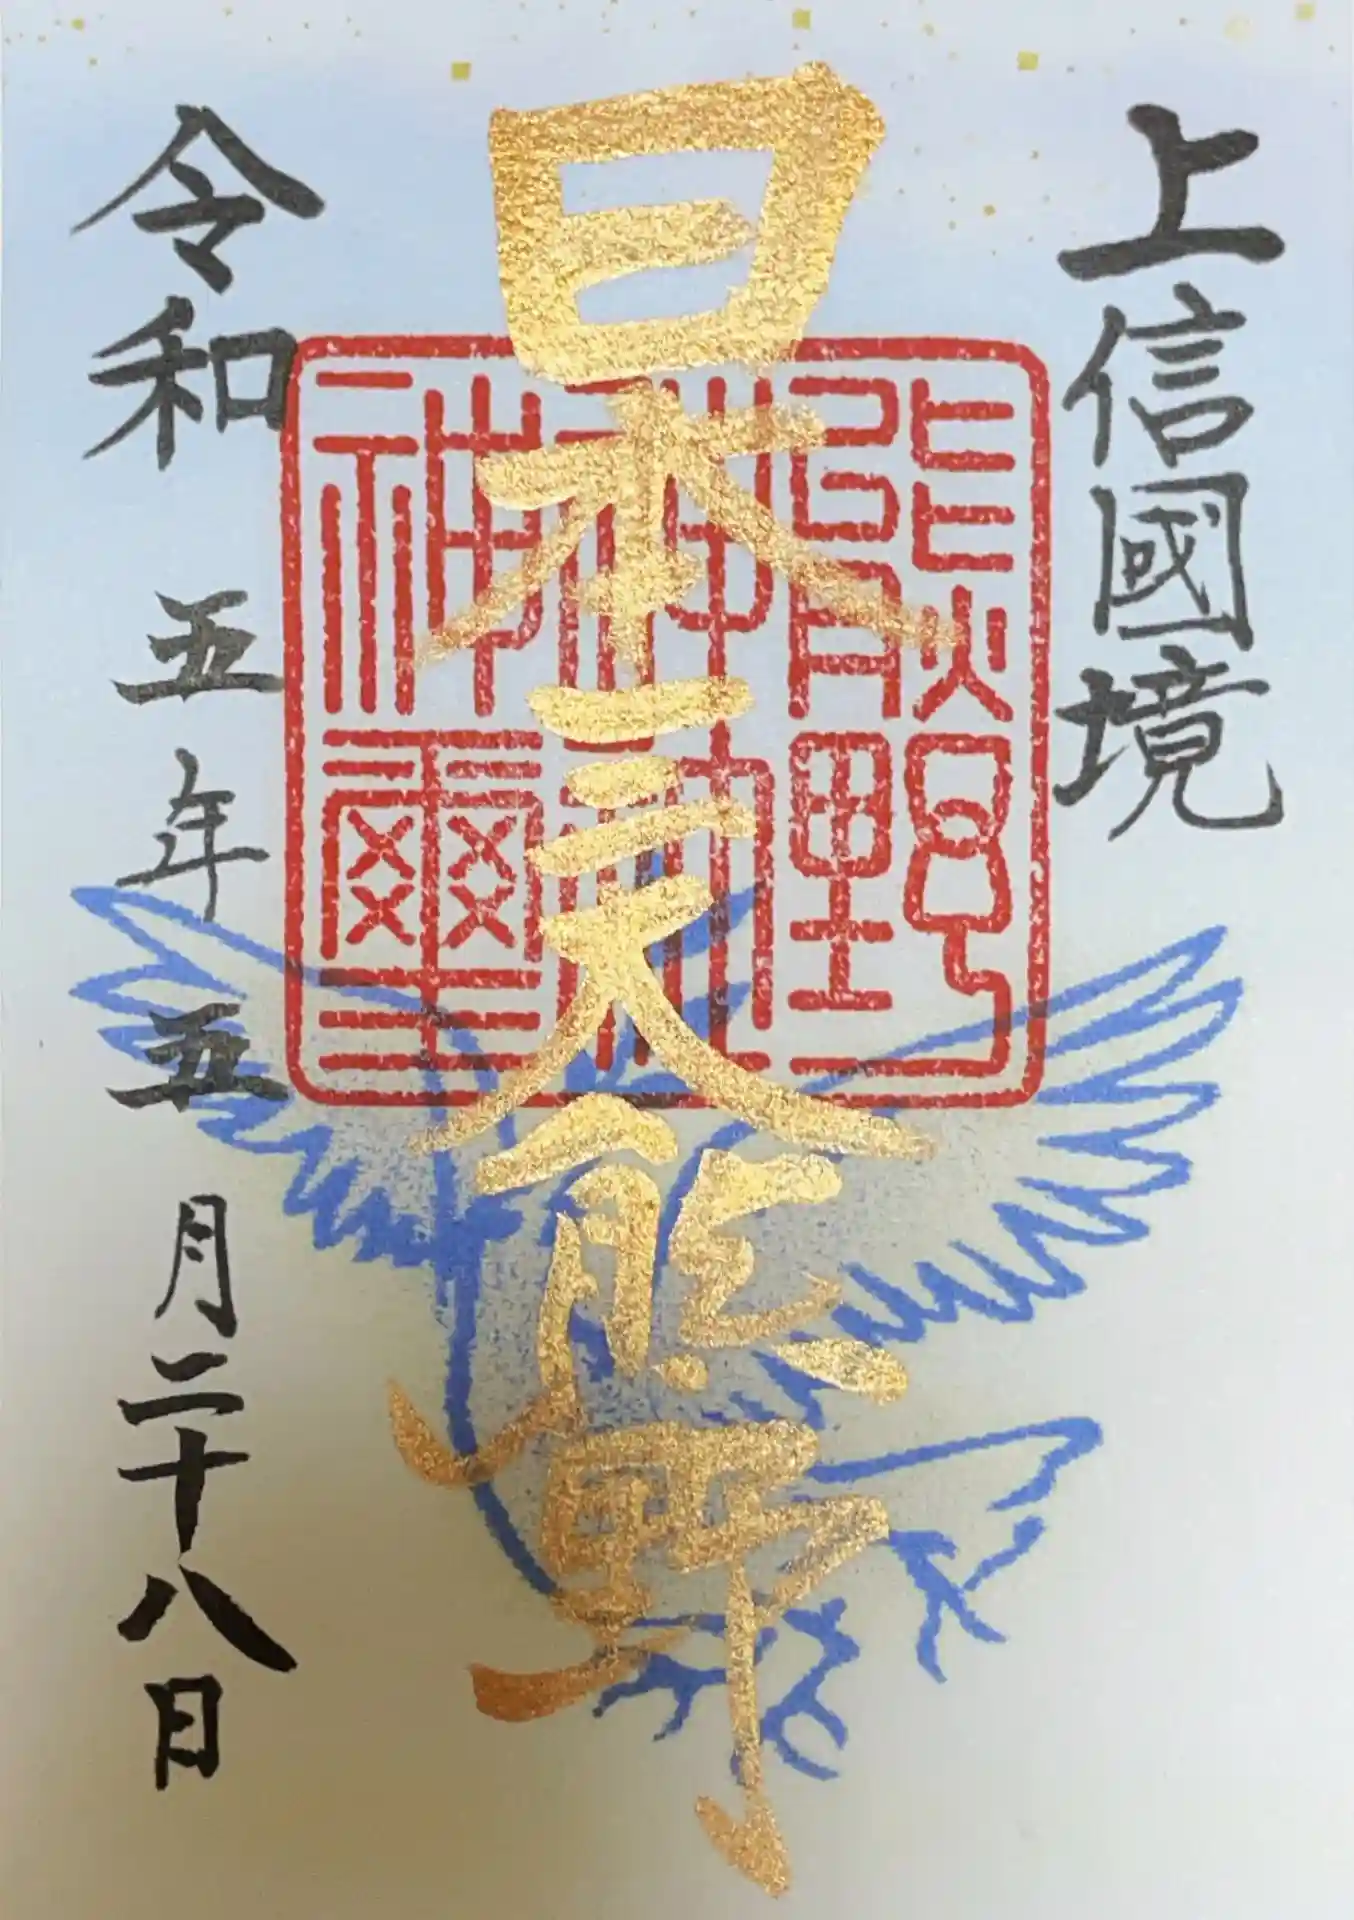 上信國境
日本三大熊野
熊野神社神璽
令和五年五月二十八日